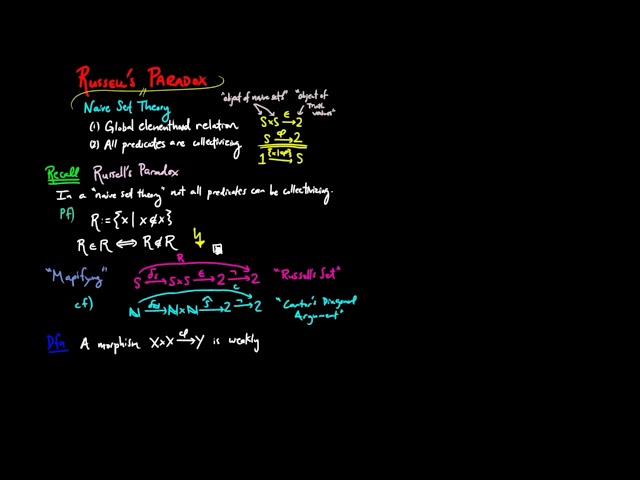 Russell's Paradox
Naive Set Theory
(1) Global elementhood relation
(2) All predicates are collectivizing
"object of naive sets" "object of truth values"
S×S —∈→ 2
S —φ→ 2
1 —{x|φ}→ S
Recall Russell's Paradox
In a "naive set theory" not all predicates can be collectivizing.
Pf) R := {x | x ∉ x}
R ∈ R ⟺ R ∉ R ↯
R
"Mapifying" S —δs→ S×S —∈→ 2 —¬→ 2 "Russell's Set"
c
cf) ℕ —δℕ→ ℕ×ℕ —ŝ→ 2 —¬→ 2 "Cantor's Diagonal Argument"
Dfn A morphism X×X —φ→ Y is weakly